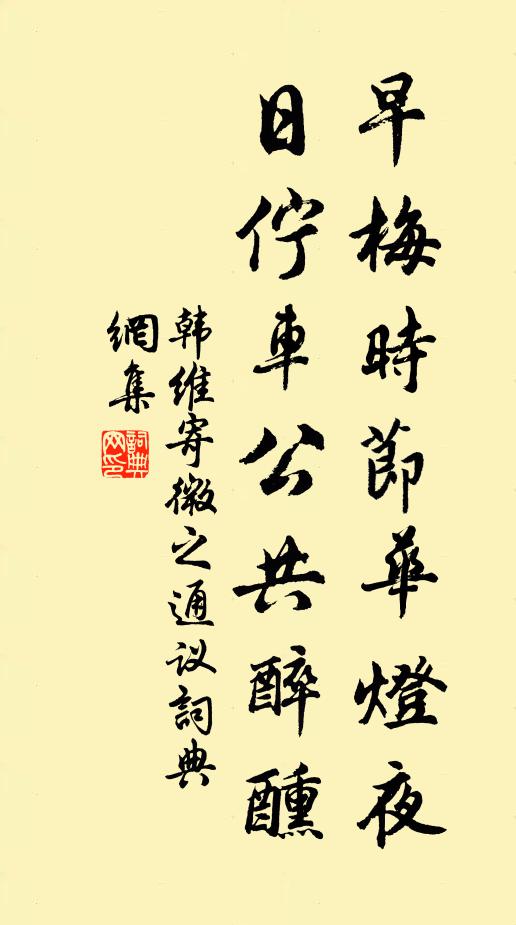 早梅時節華燈夜
日佇車公共醉醺
韩維寄微之通议詞典
網集
詞典
网印